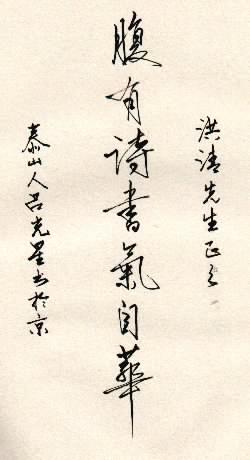 洪涛先生正之
腹有诗书氣自華
泰山人吕光星书於京